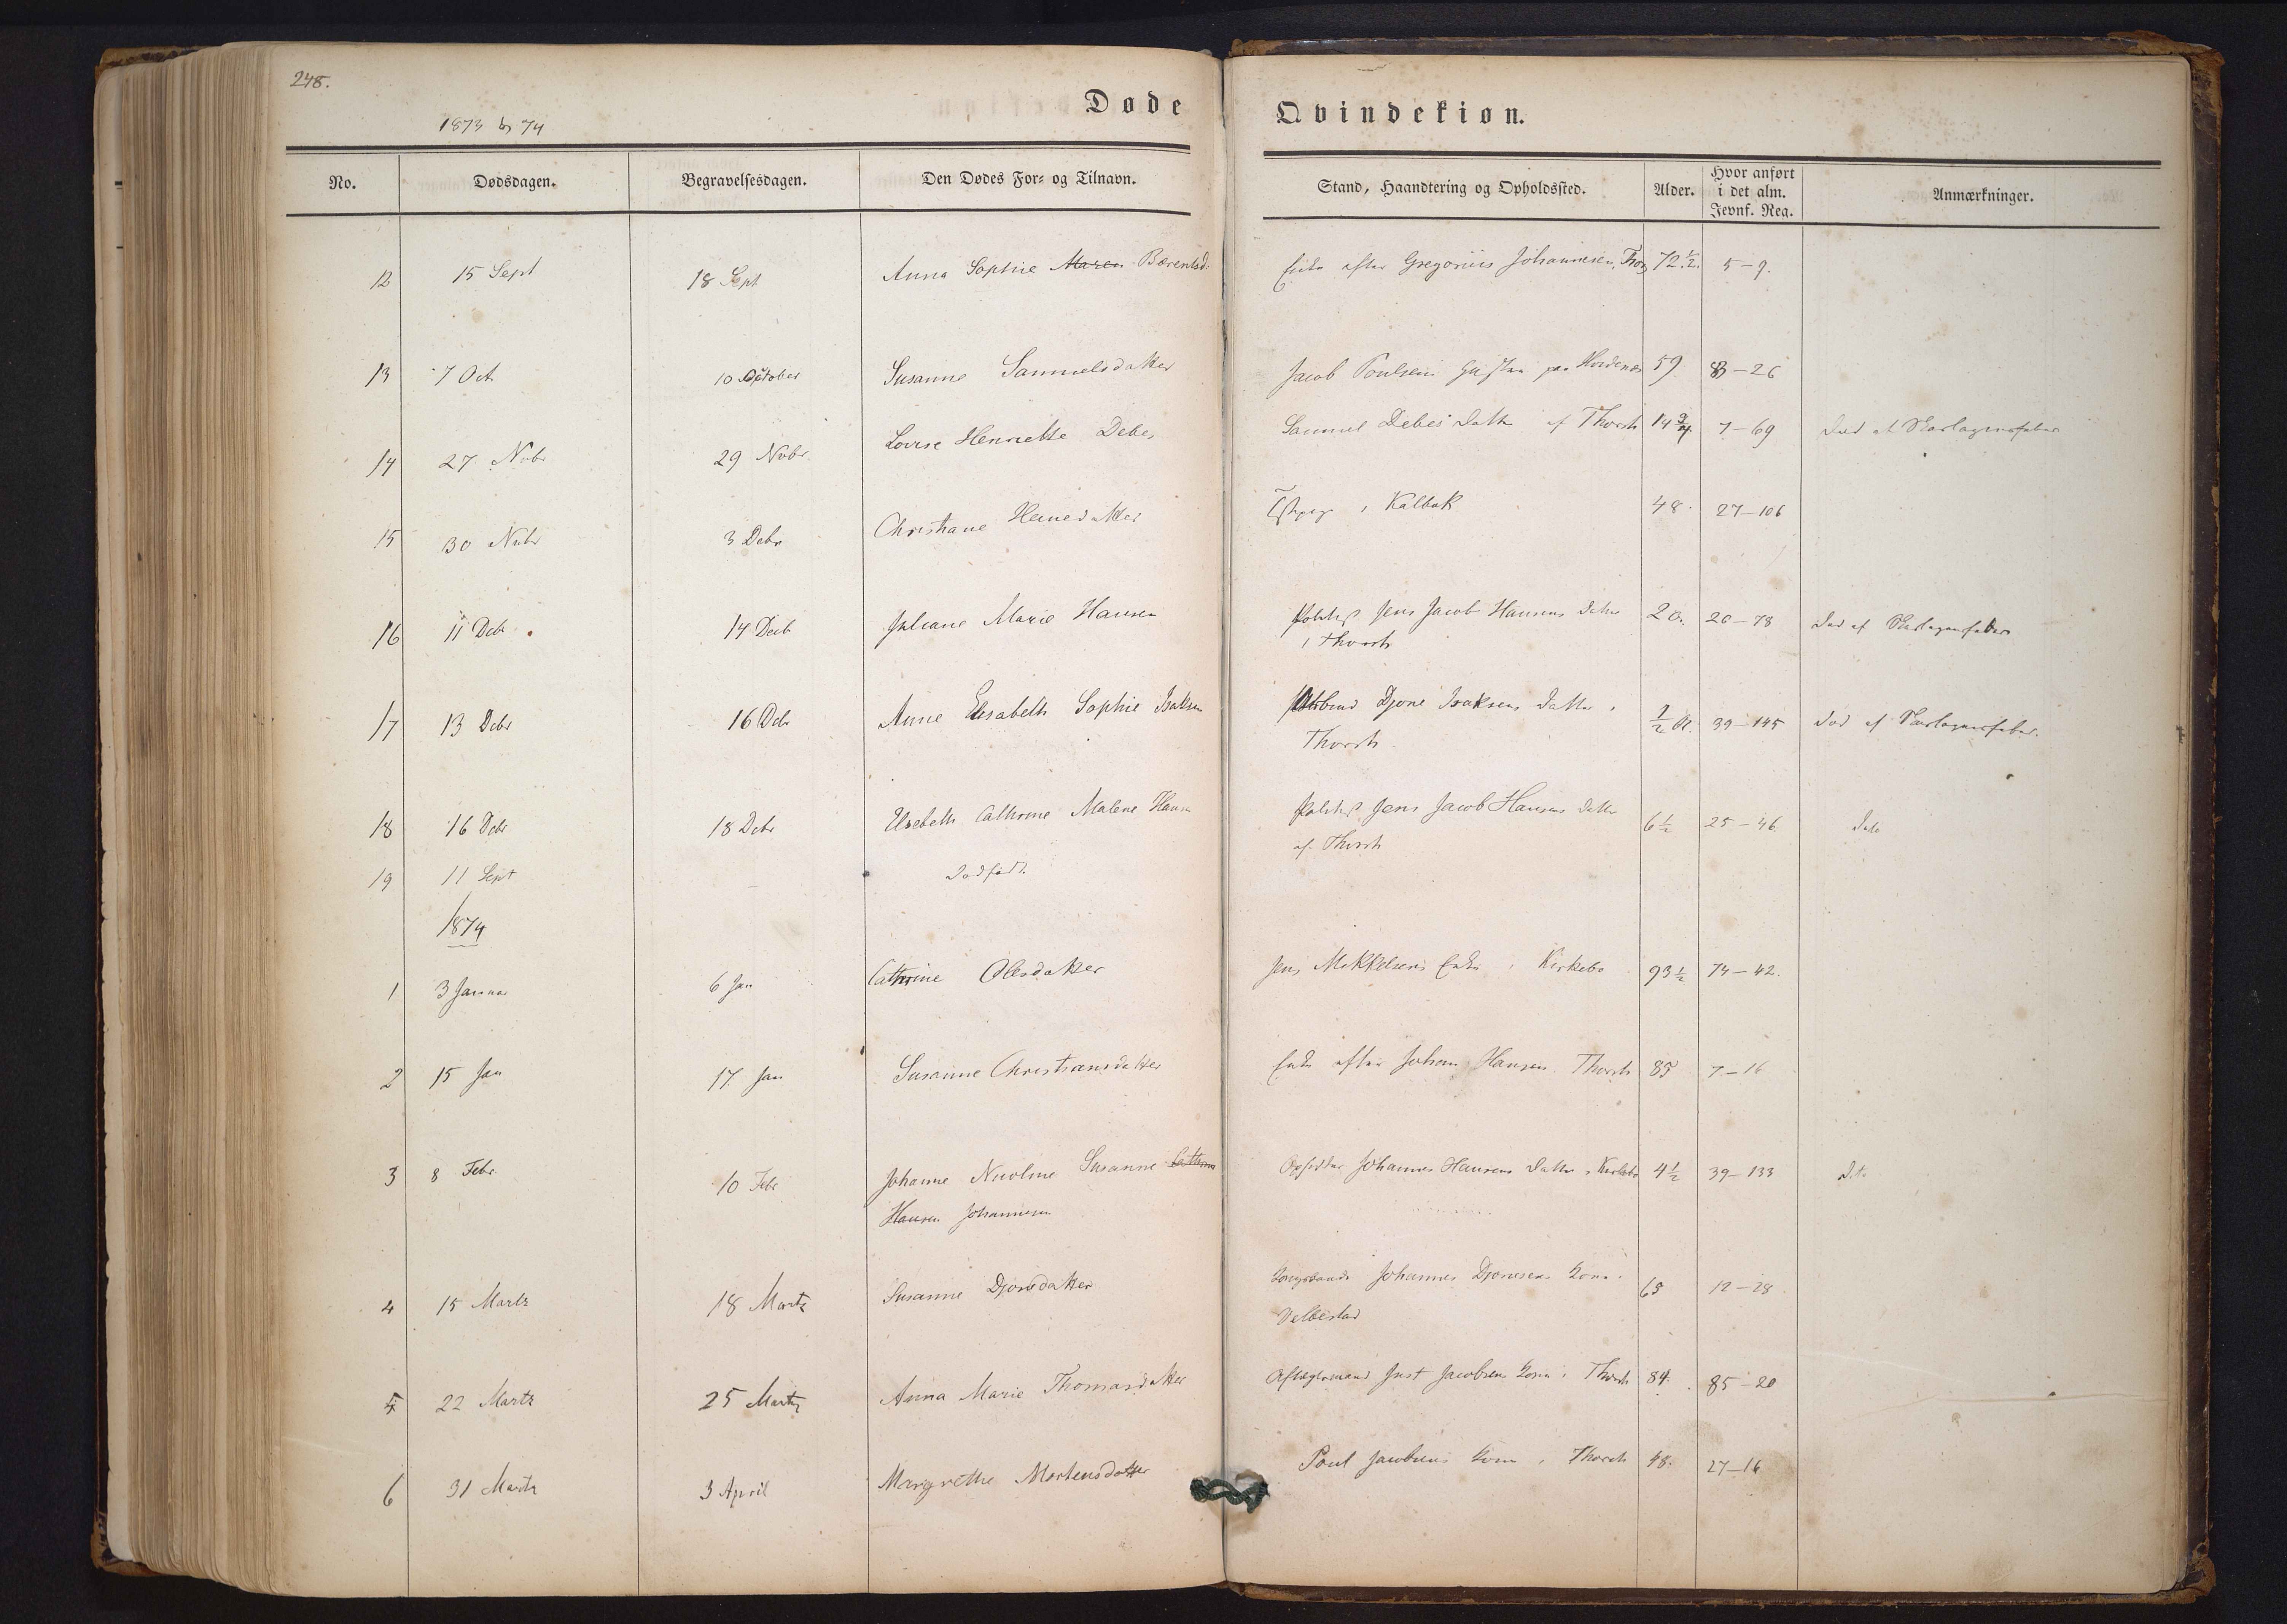 248.
1873 og 74
Døde Qvindekiøn.
No. Dødsdagen. Begravelsesdagen. Den Dødes For- og Tilnavn. Stand, Haandtering og Opholdssted. Alder. Hvor anført i det alm. Jevnf. Reg. Anmærkninger.
12 15 Sept 18 Sept Anna Sophie Maren Bærentsd. Enke efter Gregorius Johannesen, Thors 72 1/2. 5-9.
13 7 Oct 10 October Susanne Samuelsdatter Jacob Poulsens Hustru paa 59 8-26
14 27 Nvbr 29 Nvbr. Lovise Henriette Debes Samuel Debes' Datter af Thorsh 14 3/4 7-69 Død af Skarlagensfeber
15 30 Nvbr 3 Debr Christiane Heinesdatter i Kalbak 48. 27-106
16 11 Debr. 14 Decb Juliane Marie Hansen Politib. Jens Jacob Hansens Datter 20. 26-78 Død af Skarlagensfeber
i Thorsh
17 13 Debr 16 Debr Anne Elisabeth Sophie Isaksen Djone Isaksens Datter i 1/2 A. 39-145 Død af Skarlagensfeber.
Thorsh
18 16 Debr 18 Debr Elsebeth Cathrine Malene Hansen Politib. Jens Jacob Hansens Datter 6 1/2 25-46 Dito
af Thorsh
19 11 Sept - Dødfødt
1874
1 3 Januar 6 Jan Cathrine Olesdatter Jens Mikkelsens Enke i Kirkebø 93 1/2 74-42.
2 15 Jan 17 Jan Susanne Christiansdatter Enke efter Johan Hansen Thorsh 85 7-16
3 8 Febr. 10 Febr Johanne Nicoline Susanne Cathrine Opsidder Johannes Hansens Datter i Kirkebø 4 1/2 39-133 Dito
Hansen Johannesen
4 15 Marts 18 Marts Susanne Djonsdatter Kongsbonde Johannes Djonesens Kone i 65 12-28
Velbestad
5 22 Marts 25 Marts Anna Marie Thomasdatter Aftægtsmand Just Jacobsens Kone i Thorsh 84. 85-20
6 31 Marts 3 April Margrethe Mortensdatter Poul Jacobsens Kone i Thorsh 48. 27-16